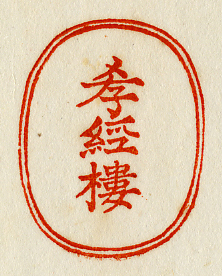 孝經樓